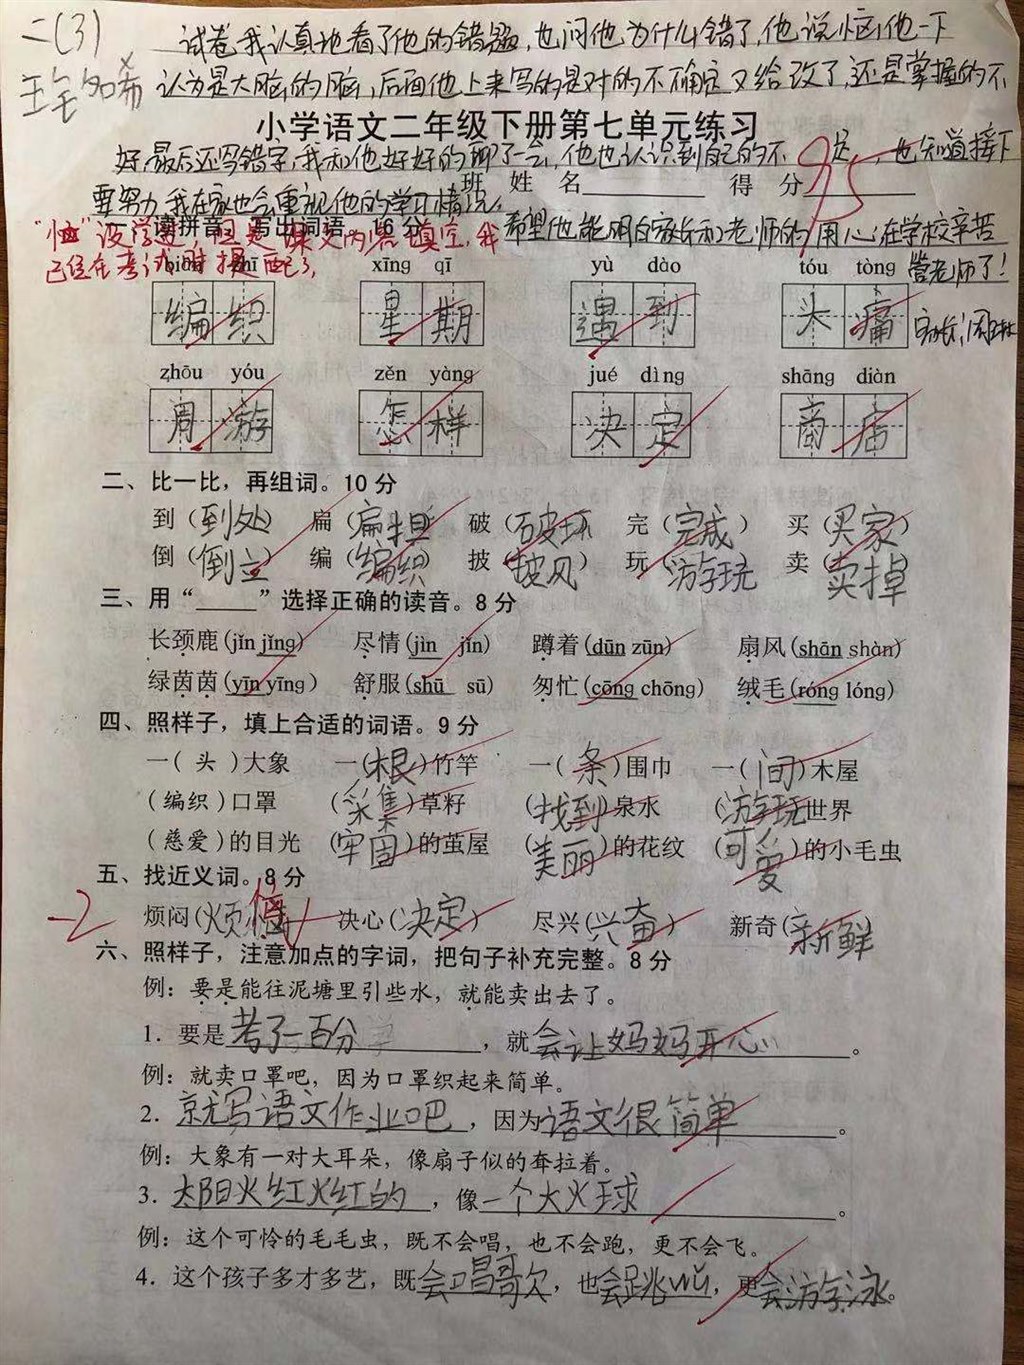 二(3)
试卷我认真地看了他的错题,也问他为什么错了,他说恼他一下
认为是大脑的脑,后面他上来写的是对的不确定又给改了,还是掌握的不
小学语文二年级下册第七单元练习
好,最后还写错字,我和他好好的聊了一会,他也认识到自己的不足,也知道接下
班 姓 名 得 分 95
要努力,我在家也会重视他的学习情况。
一、读拼音,写出词语。16 分
希望他能明白家长和老师的用心,在学校辛苦
管老师了!
biān zhī xīng qī yù dào tóu tòng
编织 星期 遇到 头痛
zhōu yóu zěn yàng jué dìng shāng diàn
周游 怎样 决定 商店
二、比一比,再组词。10 分
到(到处) 扁(扁担) 破(破坏) 完(完成) 买(买家)
倒(倒立) 编(编织) 披(披风) 玩(游玩) 卖(卖掉)
三、用“____”选择正确的读音。8 分
长颈鹿(jǐn jǐng) 尽情(jìn jǐn) 蹲着(dūn zūn) 扇风(shān shàn)
绿茵茵(yīn yīng) 舒服(shū sū) 匆忙(cōng chōng) 绒毛(róng lóng)
四、照样子,填上合适的词语。9 分
一( 头 )大象 一(根)竹竿 一(条)围巾 一(间)木屋
(编织)口罩 (采集)草籽 (找到)泉水 (游玩)世界
(慈爱)的目光 (牢固)的茧屋 (美丽)的花纹 (可爱)的小毛虫
五、找近义词。8 分
-2 烦闷(烦恼) 决心(决定) 尽兴(兴奋) 新奇(新鲜)
六、照样子,注意加点的字词,把句子补充完整。8 分
例:要是能往泥塘里引些水,就能卖出去了。
1. 要是考了一百分,就会让妈妈开心。
例:就卖口罩吧,因为口罩织起来简单。
2. 就写语文作业吧,因为语文很简单。
例:大象有一对大耳朵,像扇子似的耷拉着。
3. 太阳火红火红的,像一个大火球。
例:这个可怜的毛毛虫,既不会唱,也不会跑,更不会飞。
4. 这个孩子多才多艺,既会唱歌,也会跳wǔ,更会游泳。